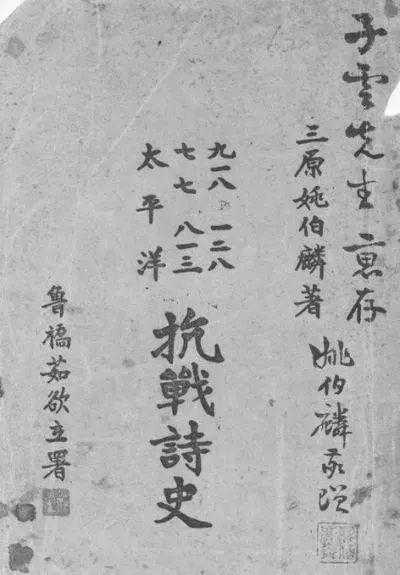 子雲先生 惠存
姚伯麟敬贈
三原姚伯麟著
九一八 一二八
七七 八一三
太平洋
抗戰詩史
魯橋茹欲立署